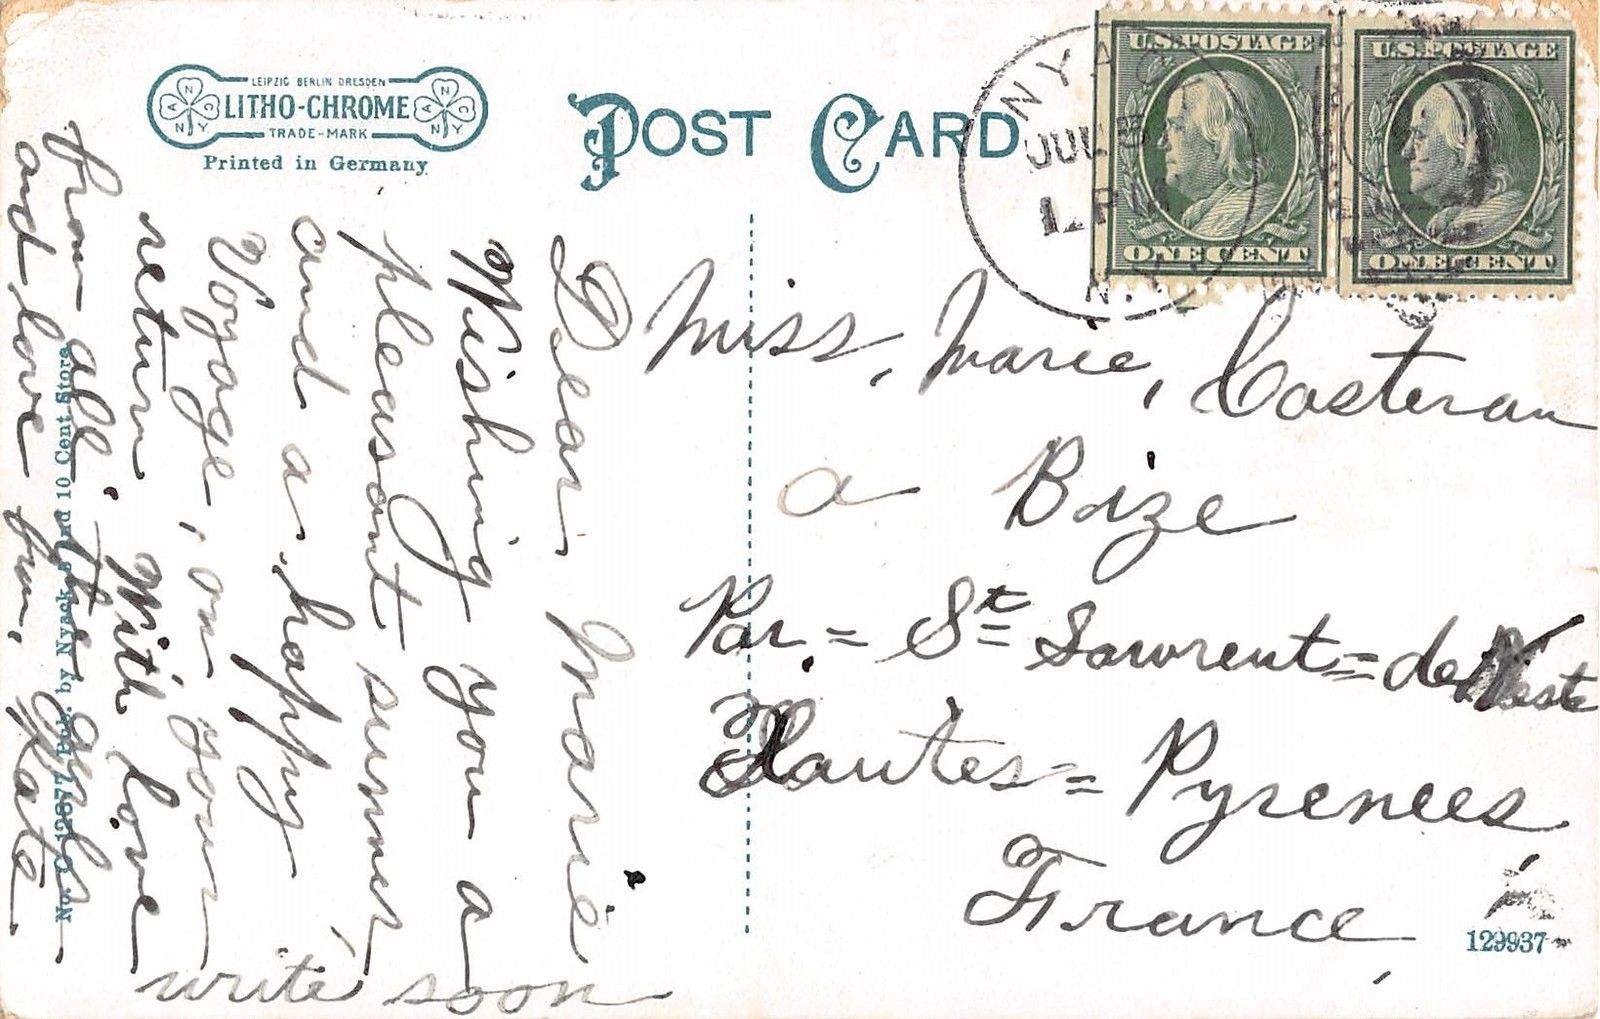 LEIPZIG BERLIN DRESDEN
LITHO-CHROME
TRADE-MARK
A N C
N.Y.
A N C
N.Y.
Printed in Germany
POST CARD
NYACK
JUL 5
1 P
N.Y.
U.S. POSTAGE
ONE CENT
U.S. POSTAGE
ONE CENT
Dear Marie
Wishing you a
pleasant summer,
and a happy
Voyage, on your
return. With love
from all the girls
and love from, Kate
write soon
Miss, Marie, Costeran
a Bize
Par = St Lawrent = de Neste
Hautes = Pyrenees,
France,
No. 12877 Pub. by Nyack 5 and 10 Cent Store
129937